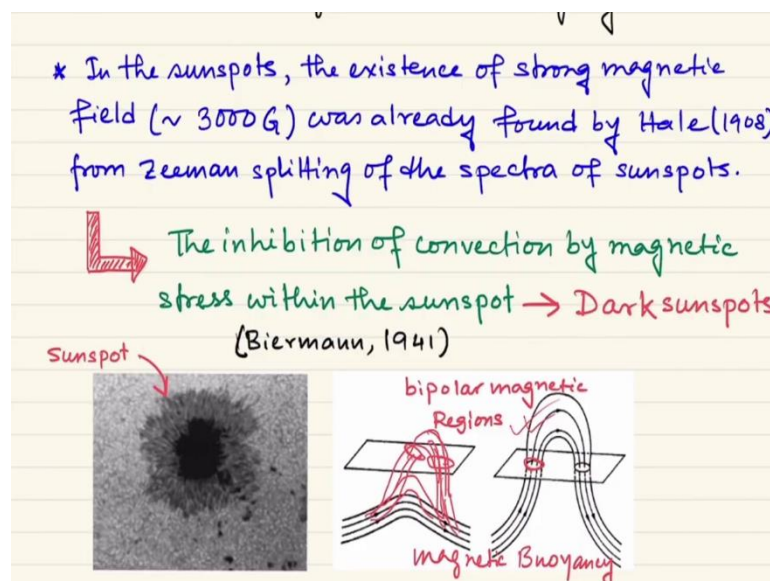 * In the sunspots, the existence of strong magnetic
field (~ 3000 G) was already found by Hale (1908)
from Zeeman splitting of the spectra of sunspots.
The inhibition of convection by magnetic
stress within the sunspot → Dark sunspots
(Biermann, 1941)
Sunspot
bipolar magnetic
Regions
magnetic Buoyancy